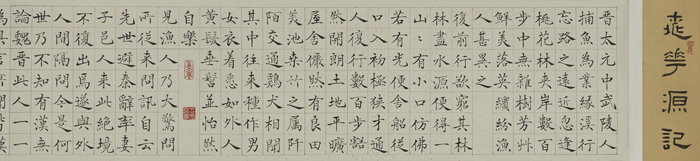 桃花源記
晉太元中武陵人
捕魚為業緣溪行
忘路之遠近忽逢
桃花林夾岸數百
步中無雜樹芳草
鮮美落英繽紛漁
人甚異之
復前行欲窮其林
林盡水源便得一
山々有小口仿佛
若有光便舍船從
口入初極狹才通
人復行數十步豁
然開朗土地平曠
屋舍儼然有良田
美池桑竹之屬阡
陌交通雞犬相聞
其中往來種作男
女衣着悉如外人
黃髮垂髫並怡然
自樂
見漁人乃大驚問
所從來問訊自云
先世避秦辭率妻
子邑人來此絕境
不復出焉遂與外
人間隔問今是何
世乃不知有漢無
論魏晉此人一一
為具言所聞皆歎